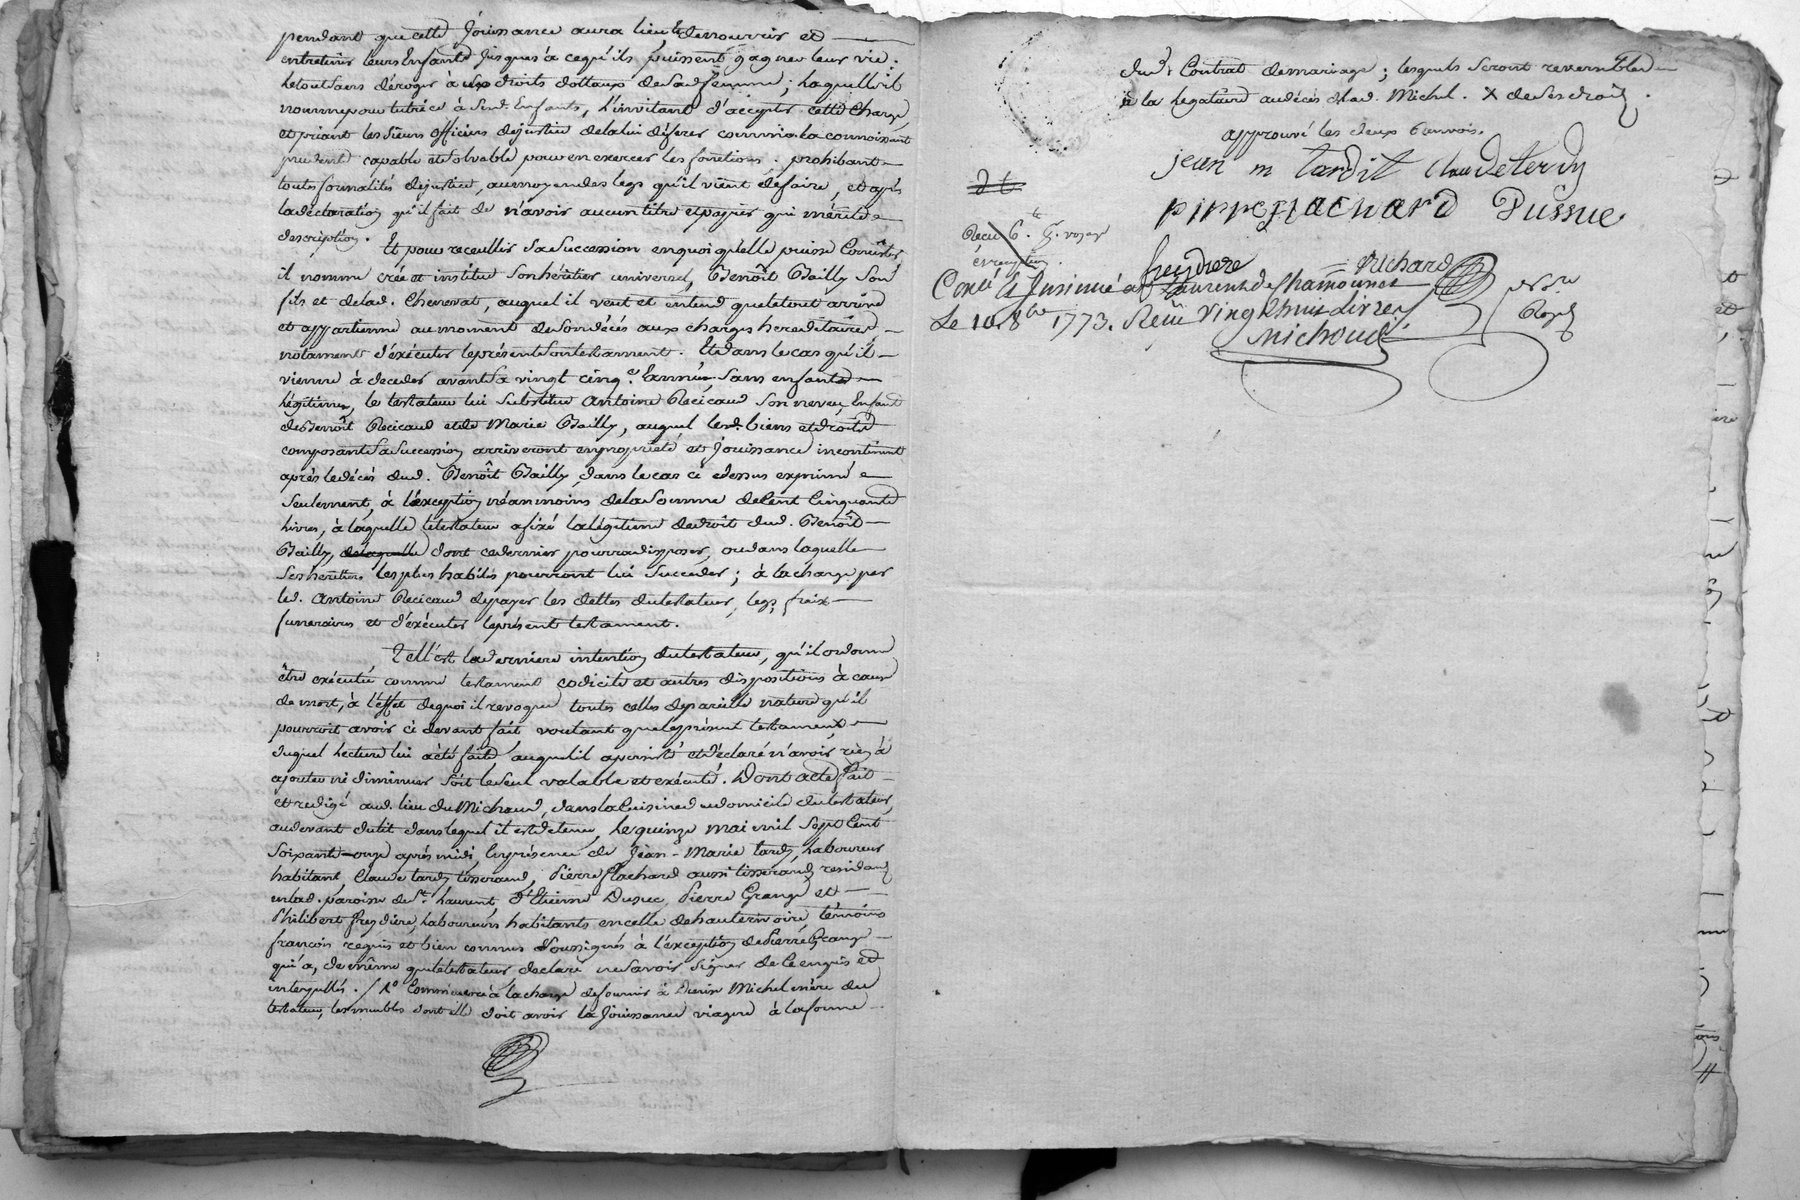 pendant que cette Jouissance aura lieu de nourrir et
entretenir leurs Enfants Jusques à ce qu'ils puissent gagner leur vie.
Le tout sans déroger à ses droits dottaux de sad. femme; laquelle il
nomme pour tutrice à sesd. Enfants, l'invitant d'accepter cette charge,
et priant les sieurs officiers de justice de la lui déférer comme la connoissant
prudente capable et solvable pour en exercer les fonctions; prohibant
toutes formalités de justice, au moyen des legs qu'il vient de faire, et après
la déclaration qu'il fait de n'avoir aucun titre et papier qui mérite
description.
Et pour recueillir sa succession en quoi qu'elle puisse Consister
il nomme crée et institue son héritier universel, Benoît Bailly son
fils et de lad. Chenevat, auquel il veut et entend que le tout arrive
et appartienne au moment de son décès aux charges hereditaires
notament d'exécuter le présent son testament. Et dans le cas qu'il
vienne à deceder avant sa vingt cinq.e année sans enfants
légitimes, le testateur lui substitue Antoine Recicaud son neveu Enfant
de Benoît Recicaud et de Marie Bailly, auquel lesd. biens et droits
composants sa succession arriveront en propriété et Jouissance incontinent
après le décès dud. Benoît Bailly, dans le cas ci dessus exprimé
seulement, à l'exception néanmoins de la somme de Cent Cinquante
livres, à laquelle le testateur a fixé la légitime de droit dud. Benoît
Bailly, de laquelle dont ce dernier pourra disposer, ou dans laquelle
ses héritiers les plus habiles pourront lui succeder; à la charge par
led. Antoine Recicaud de payer les dettes du testateur, legs, fraix
funeraires et d'exécuter le présent testament.
Tell'est la derniere intention du testateur, qu'il ordonne
être exécutée comme testament codicile et autres dispositions à cause
de mort, à l'effet de quoi il revoque toutes celles de pareille nature qu'il
pourroit avoir ci devant fait voulant que le présent testament
duquel lecture lui a été faite auquel il a persisté et déclaré n'avoir rien à
ajouter ni diminuer soit le seul valable et exécuté. Dont acte fait
et redigé aud. lieu du Michaud, dans la Cuisine du domicile du testateur,
au devant du lit dans lequel il est detenu, Le quinze mai mil sept Cent
soixante-onze après midi, En présence de Jean-Marie tardy, laboureur
habitant Claude tardy tisserand, Pierre flachard aussi tisserand residants
en lad. paroisse de St. Laurent, Etienne Dussuc, Pierre Grange et
Philibert freydiere, laboureurs habitants en celle de hauterivoire témoins
françois requis et bien connus soussignés à l'exception de Pierre Grange
qui a, de même que le testateur declaré ne savoir signer de Ce enquis et
interpellés. Comme à la charge de fournir à Michel mère du
testateur, les meubles dont elle doit avoir la Jouissance viagere à la forme
dud. Contrat de mariage; lesquels seront reversibles
à la legataire au décès de lad. Michel. X de ses droits.
approuvé les deux renvois.
jean m tardit Claude tardy
pierre flachard Dussuc
Recu 6.
freydiere Richard
Conté & Insinué à St Laurent de Chamousset
Le 10 8bre 1773. Recu vingt huit Livres
Michoud